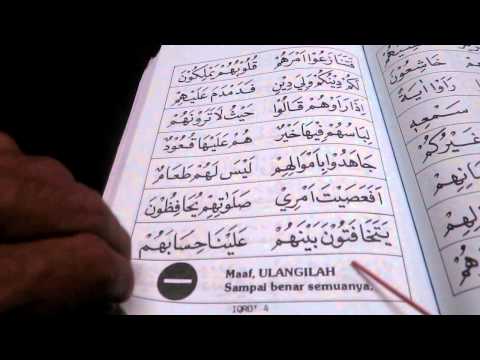 فَتَنَازَعُوْا اَمْرَهُمْ قُلُوْبُهُمْ يَمْلِكُوْنَ
لَكُمْ دِيْنُكُمْ وَلِيَ دِيْنِ فَدَمْدَمَ عَلَيْهِمْ
اِذَا رَاَوْهُمْ قَالُوْا حَيْثُ لَا تَرَوْنَهُمْ
لِبَاسُهُمْ فِيْهَا خَيْرٌ هُمْ عَلَيْهَا قُعُوْدٌ
جَاهَدُوْا بِاَمْوَالِهِمْ لَيْسَ لَهُمْ طَعَامٌ
اَفَعَصَيْتَ اَمْرِيْ صَلَوٰتِهِمْ يُحَافِظُوْنَ
يَتَخَافَتُوْنَ بَيْنَهُمْ عَلَيْنَا حِسَابَهُمْ
Maaf, ULANGILAH
Sampai benar semuanya.
IQRO' 4
خَاشِعُوْنَ
رَاَوْا اٰيَةً
سَمْعِهِ
غَيْرُكُمْ